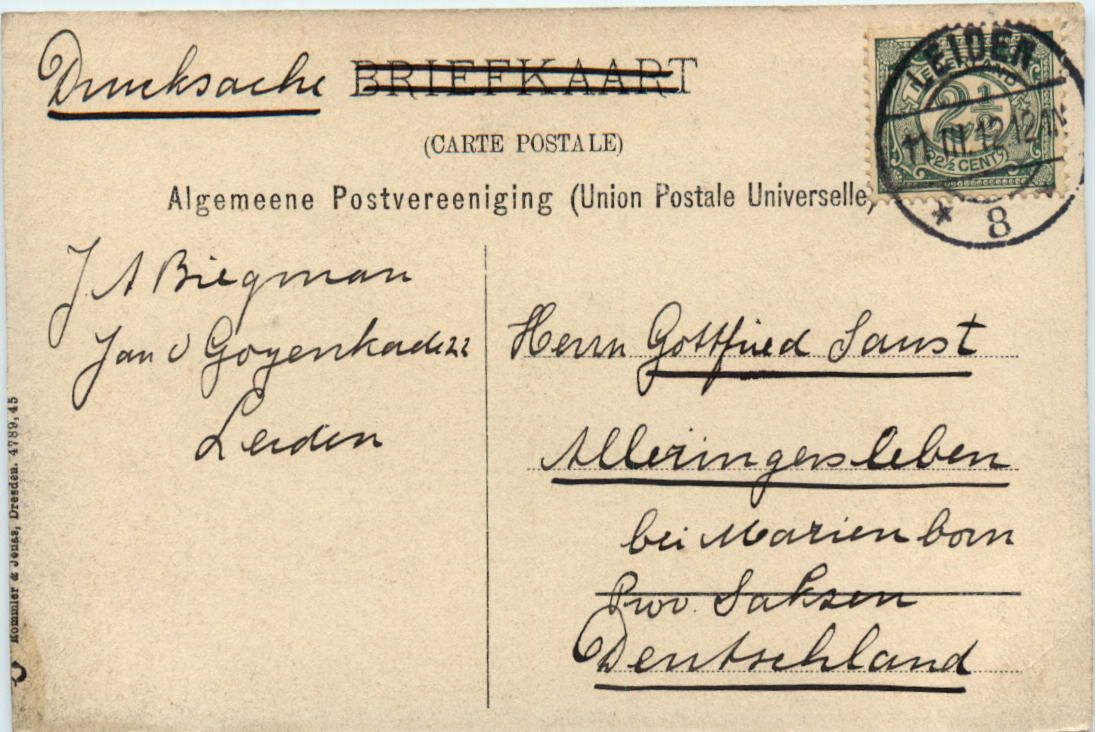 Drucksache BRIEFKAART
(CARTE POSTALE)
Algemeene Postvereeniging (Union Postale Universelle)
NEDERLAND
2½
2½ CENT
LEIDEN
11.III.12 12-1N
* 8
J. A Biegman
Jan v Goyenkade 22
Leiden
Herrn Gottfried Saust
Alleringersleben
bei Marienborn
Prov. Saksen
Deutschland
Römmler & Jonas, Dresden. 4789,45